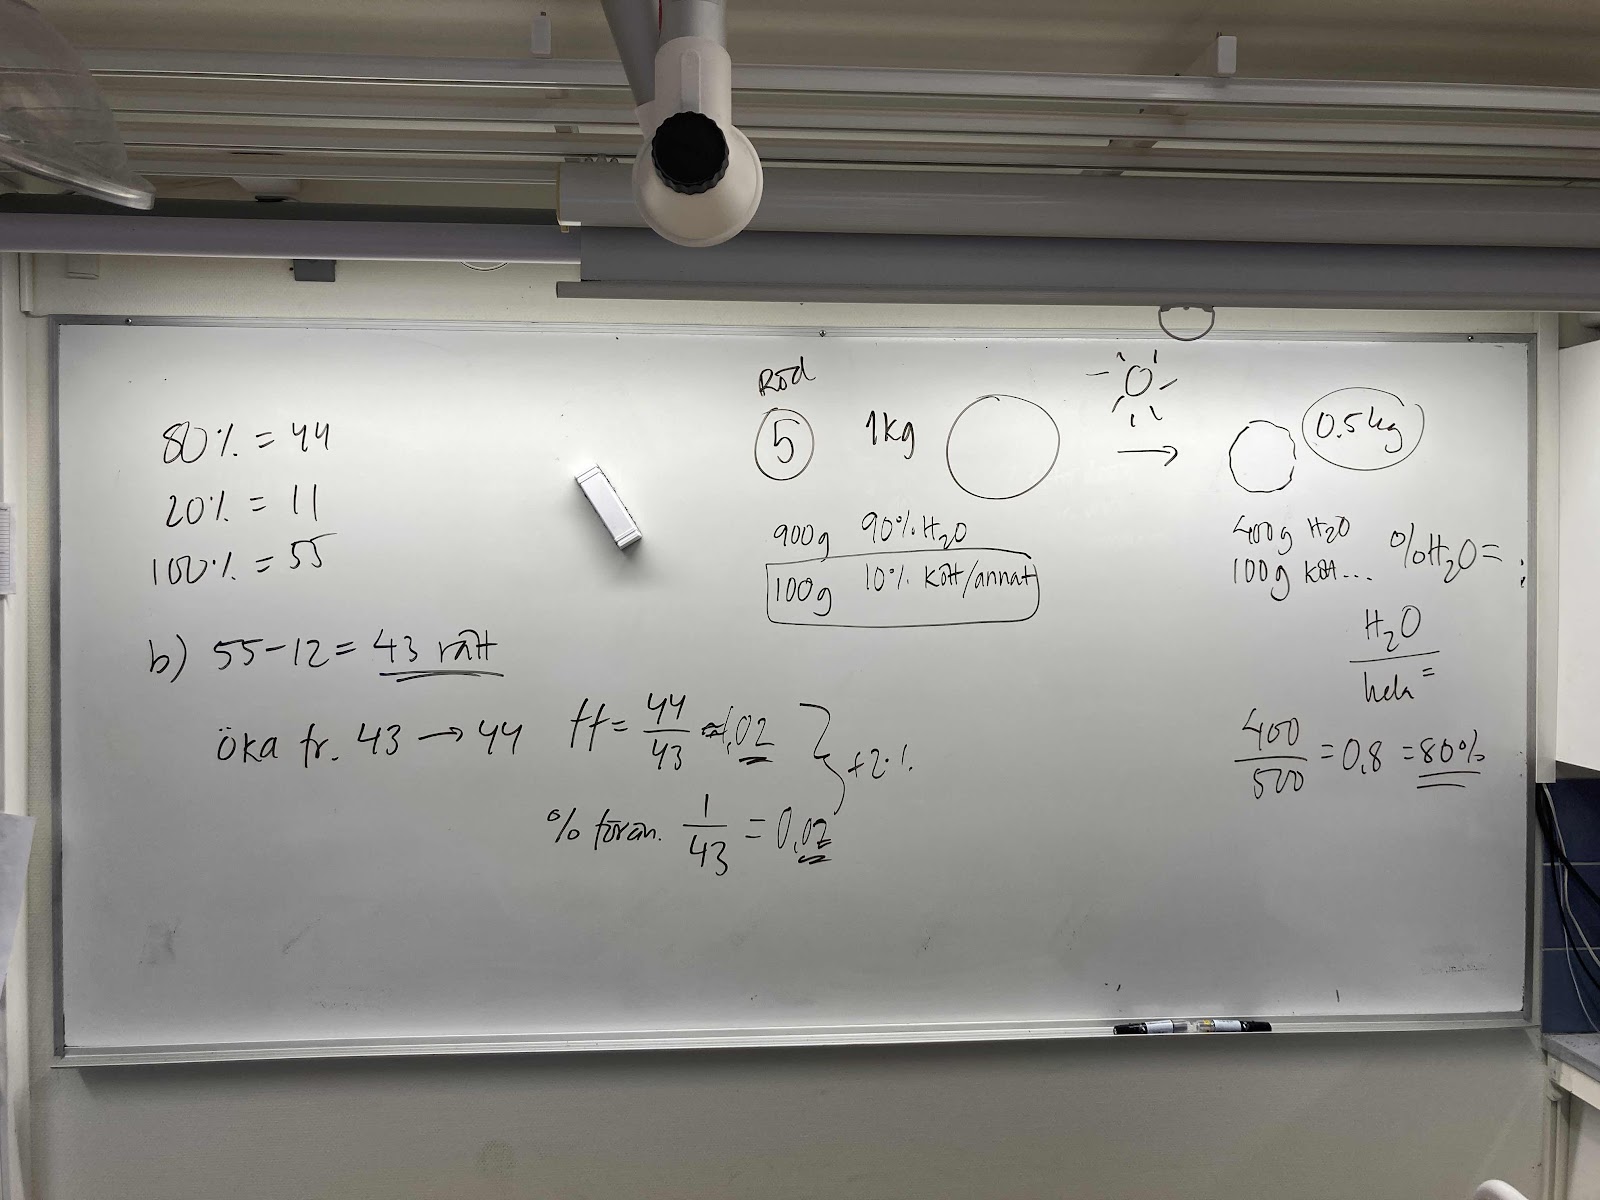 80% = 44
20% = 11
100% = 55
b) 55-12 = 43 rätt
öka fr. 43 → 44
ff = 44/43 ≈ 1,02
% förän. 1/43 = 0,02
+2%
Röd
5 1kg
→
0.5kg
900g 90% H₂O
100g 10% kött/annat
400g H₂O
100g köt...
%H₂O =
H₂O/hela =
400/500 = 0,8 = 80%